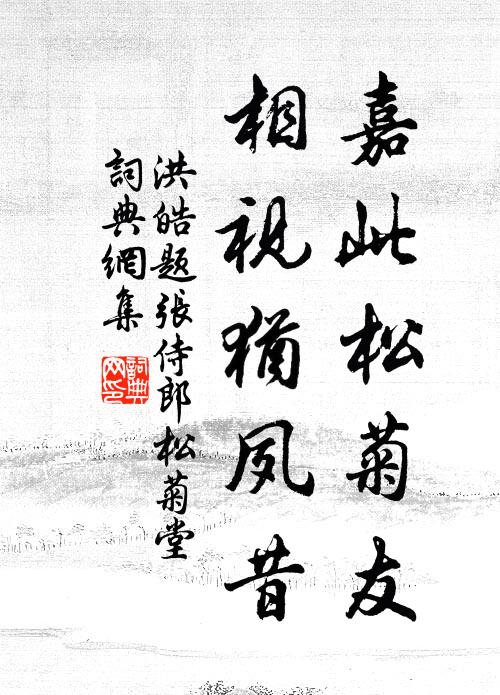 嘉此松菊友
相視猶夙昔
洪皓题張侍郎松菊堂
詞典網集
詞典網印